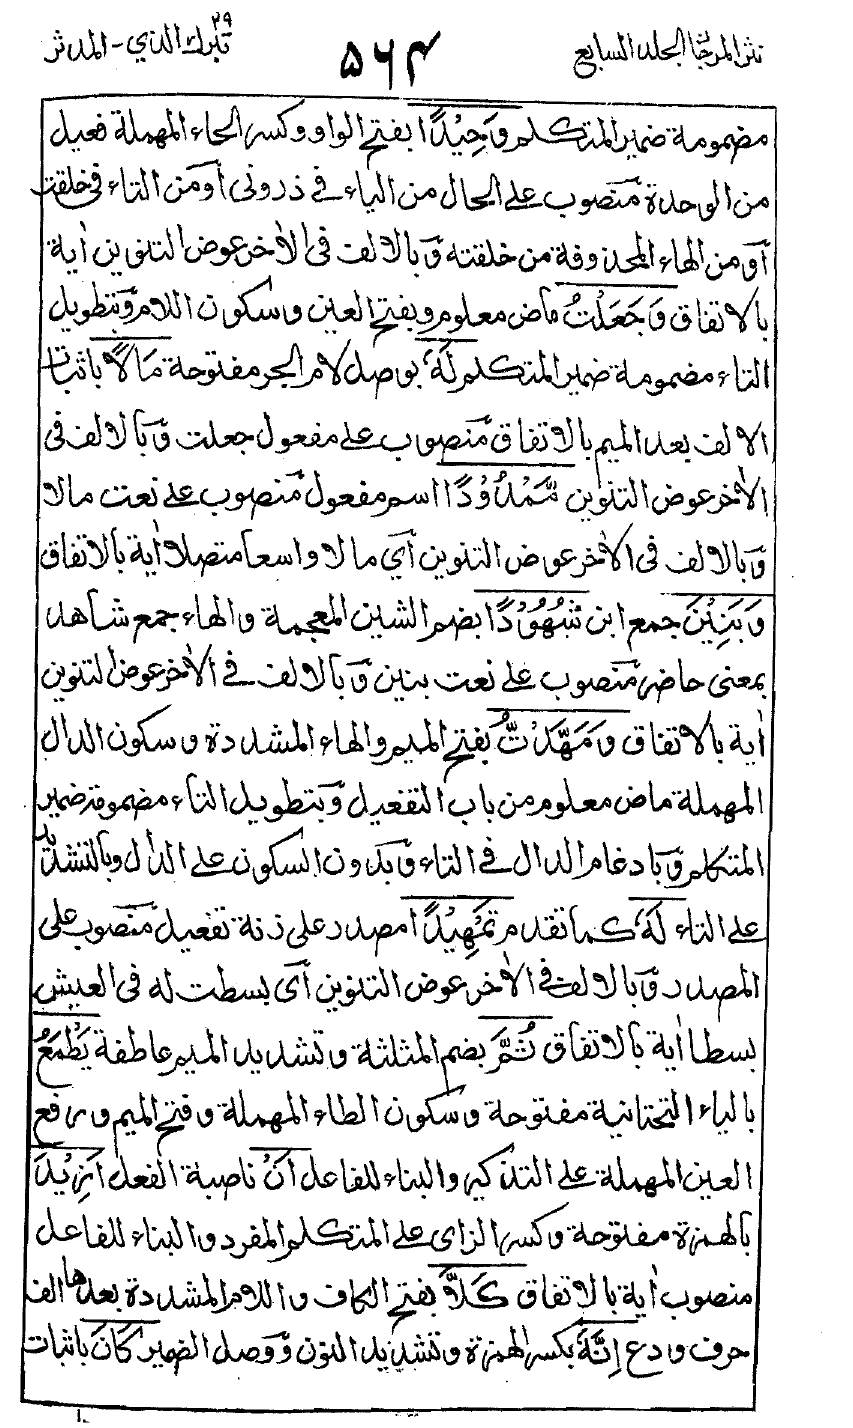 نثر المرجان الجلد السابع
۵۶۴
تبرك الذي ۲۹ - المدثر
مضمومة ضمير المتكلم وَحِيْدًا بفتح الواو وكسر الحاء المهملة فعيل
من الوحدة منصوب على الحال من الياء في ذروني أو من التاء في خلقت
أو من الهاء المحذوفة من خلقته وبالالف في الاٰخر عوض التنوين اٰية
بالاتفاق وَجَعَلْتُ ماض معلوم وبفتح العين وسكون اللام وبتطويل
التاء مضمومة ضمير المتكلم لَهٗ بوصل لام الجر مفتوحة مَالًا باثبات
الالف بعد الميم بالاتفاق منصوب على مفعول جعلت وبالالف في
الاٰخر عوض التنوين مَّمْدُوْدًا اسم مفعول منصوب على نعت مالا
وبالالف في الاٰخر عوض التنوين أي مالا واسعا متصلا اٰية بالاتفاق
وَبَنِيْنَ جمع ابن شُهُوْدًا بضم الشين المعجمة والهاء جمع شاهد
بمعنى حاضر منصوب على نعت بنين وبالالف في الاٰخر عوض التنوين
اٰية بالاتفاق وَمَهَّدْتُّ بفتح الميم والهاء المشددة وسكون الدال
المهملة ماض معلوم من باب التفعيل وبتطويل التاء مضمومة ضمير
المتكلم وبادغام الدال في التاء وبدون السكون على الدال وبالتشديد
على التاء لَهٗ كما تقدم تَمْهِيْدًا مصدر على زنة تفعيل منصوب على
المصدر وبالالف في الاٰخر عوض التنوين أي بسطت له في العيش
بسطا اٰية بالاتفاق ثُمَّ بضم المثلثة وتشديد الميم عاطفة يَطْمَعُ
بالياء التحتانية مفتوحة وسكون الطاء المهملة وفتح الميم ورفع
العين المهملة على التذكير والبناء للفاعل اَنْ ناصبة الفعل اَزِيْدَ
بالهمزة مفتوحة وكسر الزاي على المتكلم المفرد والبناء للفاعل
منصوب اٰية بالاتفاق كَلَّا بفتح الكاف واللام المشددة بعدها الف
حرف ردع اِنَّهٗ بكسر الهمزة وتشديد النون ووصل الضمير كَانَ باثبات